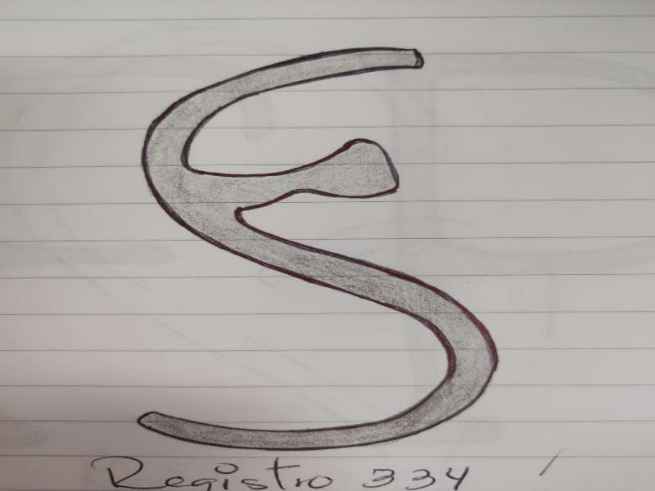 Registro 334